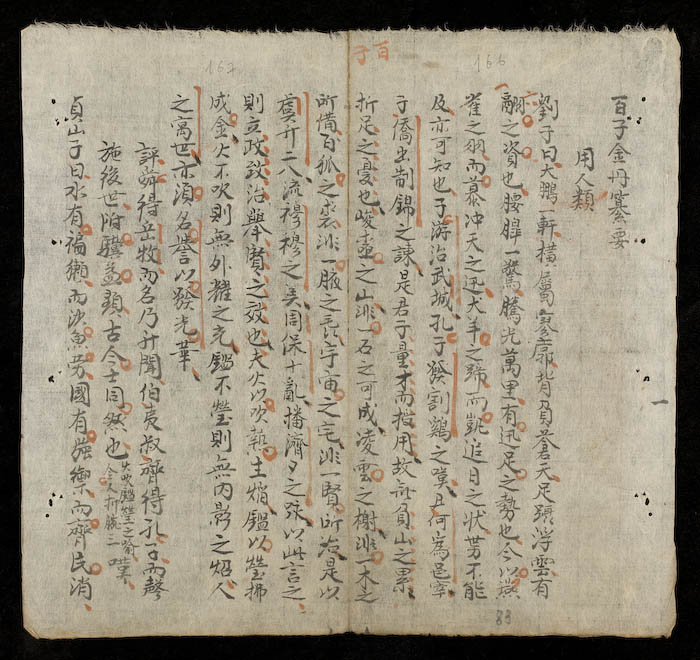 百子金丹纂要
用人類
劉子曰大鵬一軒橫厲寥廓背負蒼天足蹑浮雲有
翮之資也腰騕一騖騰光萬里有迅足之勢也今以燕
雀之羽而慕冲天之迅犬羊之蹄而覬追日之狀势不能
及亦可知也子游治武城孔子發割雞之嘆丑何為邑宰
子僑出制錦之諫是君子量才而授用故無負山之累
折足之憂也峻壺之山非一石之可成凌雲之榭非一木之
所構百狐之裘非一腋之毳宇宙之宅非一賢所治是以
虞升二八流穆穆之美周保十亂播濟夕之詠以此言之
則立政致治舉賢之效也夫火以吹爇生焰鑑以瑩拂
成金火不吹則無外耀之光鑑不瑩則無内影之炤人
之寓世亦須名譽以發光華
評論得岳牧而名乃升聞伯夷叔齊得孔子而聲
施後世附驥益顕古今士同然也
火吹鑑瑩之喻
嘆
貞山子曰水有猵獺而沙魚劳國有强禦而齊民消
百子
166
167
一
88